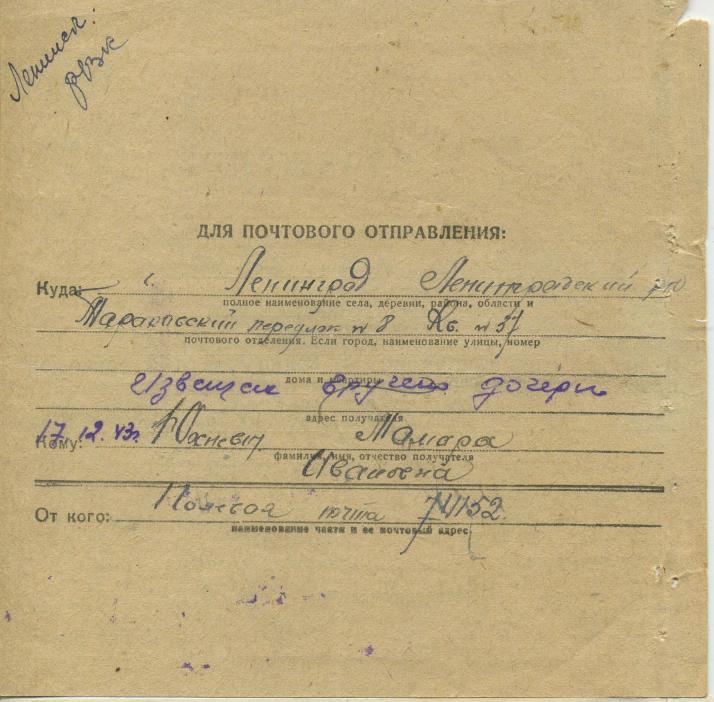 Ленинск.
рвзк
ДЛЯ ПОЧТОВОГО ОТПРАВЛЕНИЯ:
Куда: г. Ленинград Ленинградский
полное наименование села, деревни, района, области и
№ 8 Кв. № 37
почтового отделения. Если город, наименование улицы, номер
дома и квартиры
вручено дочери
адрес получателя
17.12.43г.
Кому: Юхневич Тамара
фамилия, имя, отчество получателя
Ивановна
От кого: Полевая почта 74152.
наименование части и ее почтовый адрес